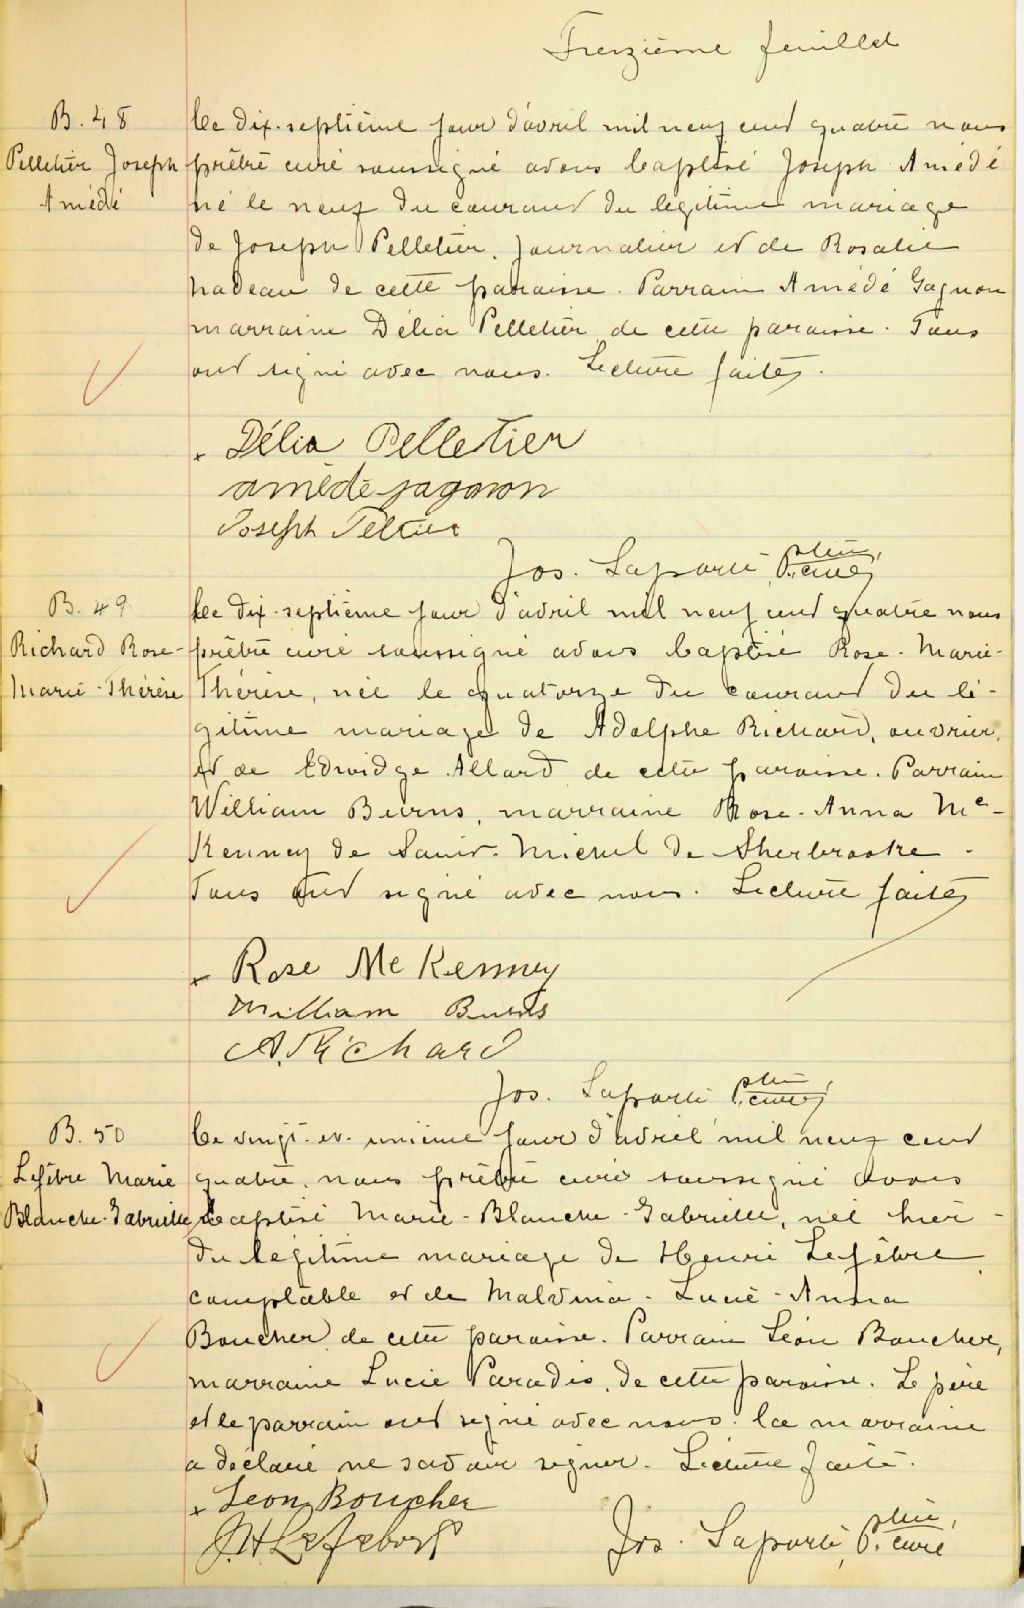 Treizième feuillet
B. 48
Pelletier Joseph
Amédé
Le dix-septième jour d'avril mil neuf cent quatre nous
prêtre curé soussigné avons baptisé Joseph Amédé
né le neuf du courant du légitime mariage
de Joseph Pelletier, journalier et de Rosalie
Nadeau de cette paroisse. Parrain Amédé Gagnon
marraine Délia Pelletier de cette paroisse. Tous
ont signé avec nous. Lecture faite.
x Délia Pelletier
amédé gagnon
Joseph Peltier
Jos. Laporte, ptre, P. curé
B. 49
Richard Rose-
Marie-Thérèse
Le dix-septième jour d'avril mil neuf cent quatre nous
prêtre curé soussigné avons baptisé Rose-Marie-
Thérèse, née le quatorze du courant du lé-
gitime mariage de Adolphe Richard, ouvrier,
et de Edwidge Allard de cette paroisse. Parrain
William Burns, marraine Rose-Anna Mc-
Kenney de Saint-Michel de Sherbrooke.
Tous ont signé avec nous. Lecture faite
x Rose McKenney
William Burns
A. Richard
Jos. Laporte ptre, P. curé
B. 50
Lefêbre Marie
Blanche-Gabrielle
Le vingt-et-unième jour d'avril mil neuf cent
quatre, nous prêtre curé soussigné avons
baptisé Marie-Blanche-Gabrielle, née hier
du légitime mariage de Henri Lefêbre
comptable et de Malvina-Lucie-Anna
Boucher de cette paroisse. Parrain Léon Boucher,
marraine Lucie Paradis, de cette paroisse. Le père
et le parrain ont signé avec nous. La marraine
a déclaré ne savoir signer. Lecture faite.
x Leon Boucher
J.H Lefebvre
Jos. Laporte, ptre, P. curé